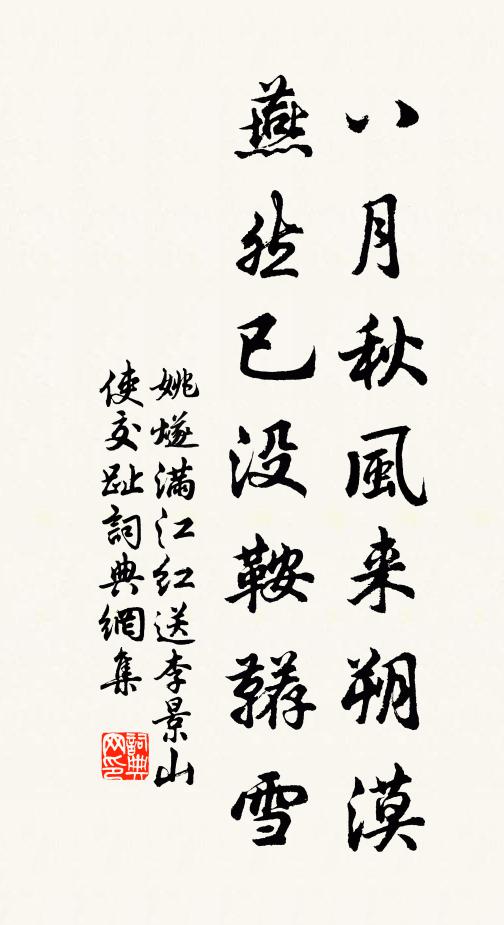 八月秋風来朔漠
燕然已没鞍韉雪
姚燧満江红送李景山
使交趾詞典網集
詞典网印